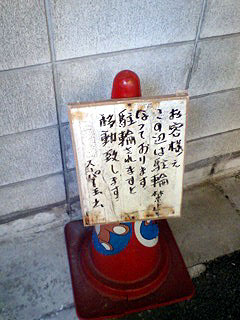 お客様え
この辺は駐輪禁止に
なっております
駐輪されますと
移動致します